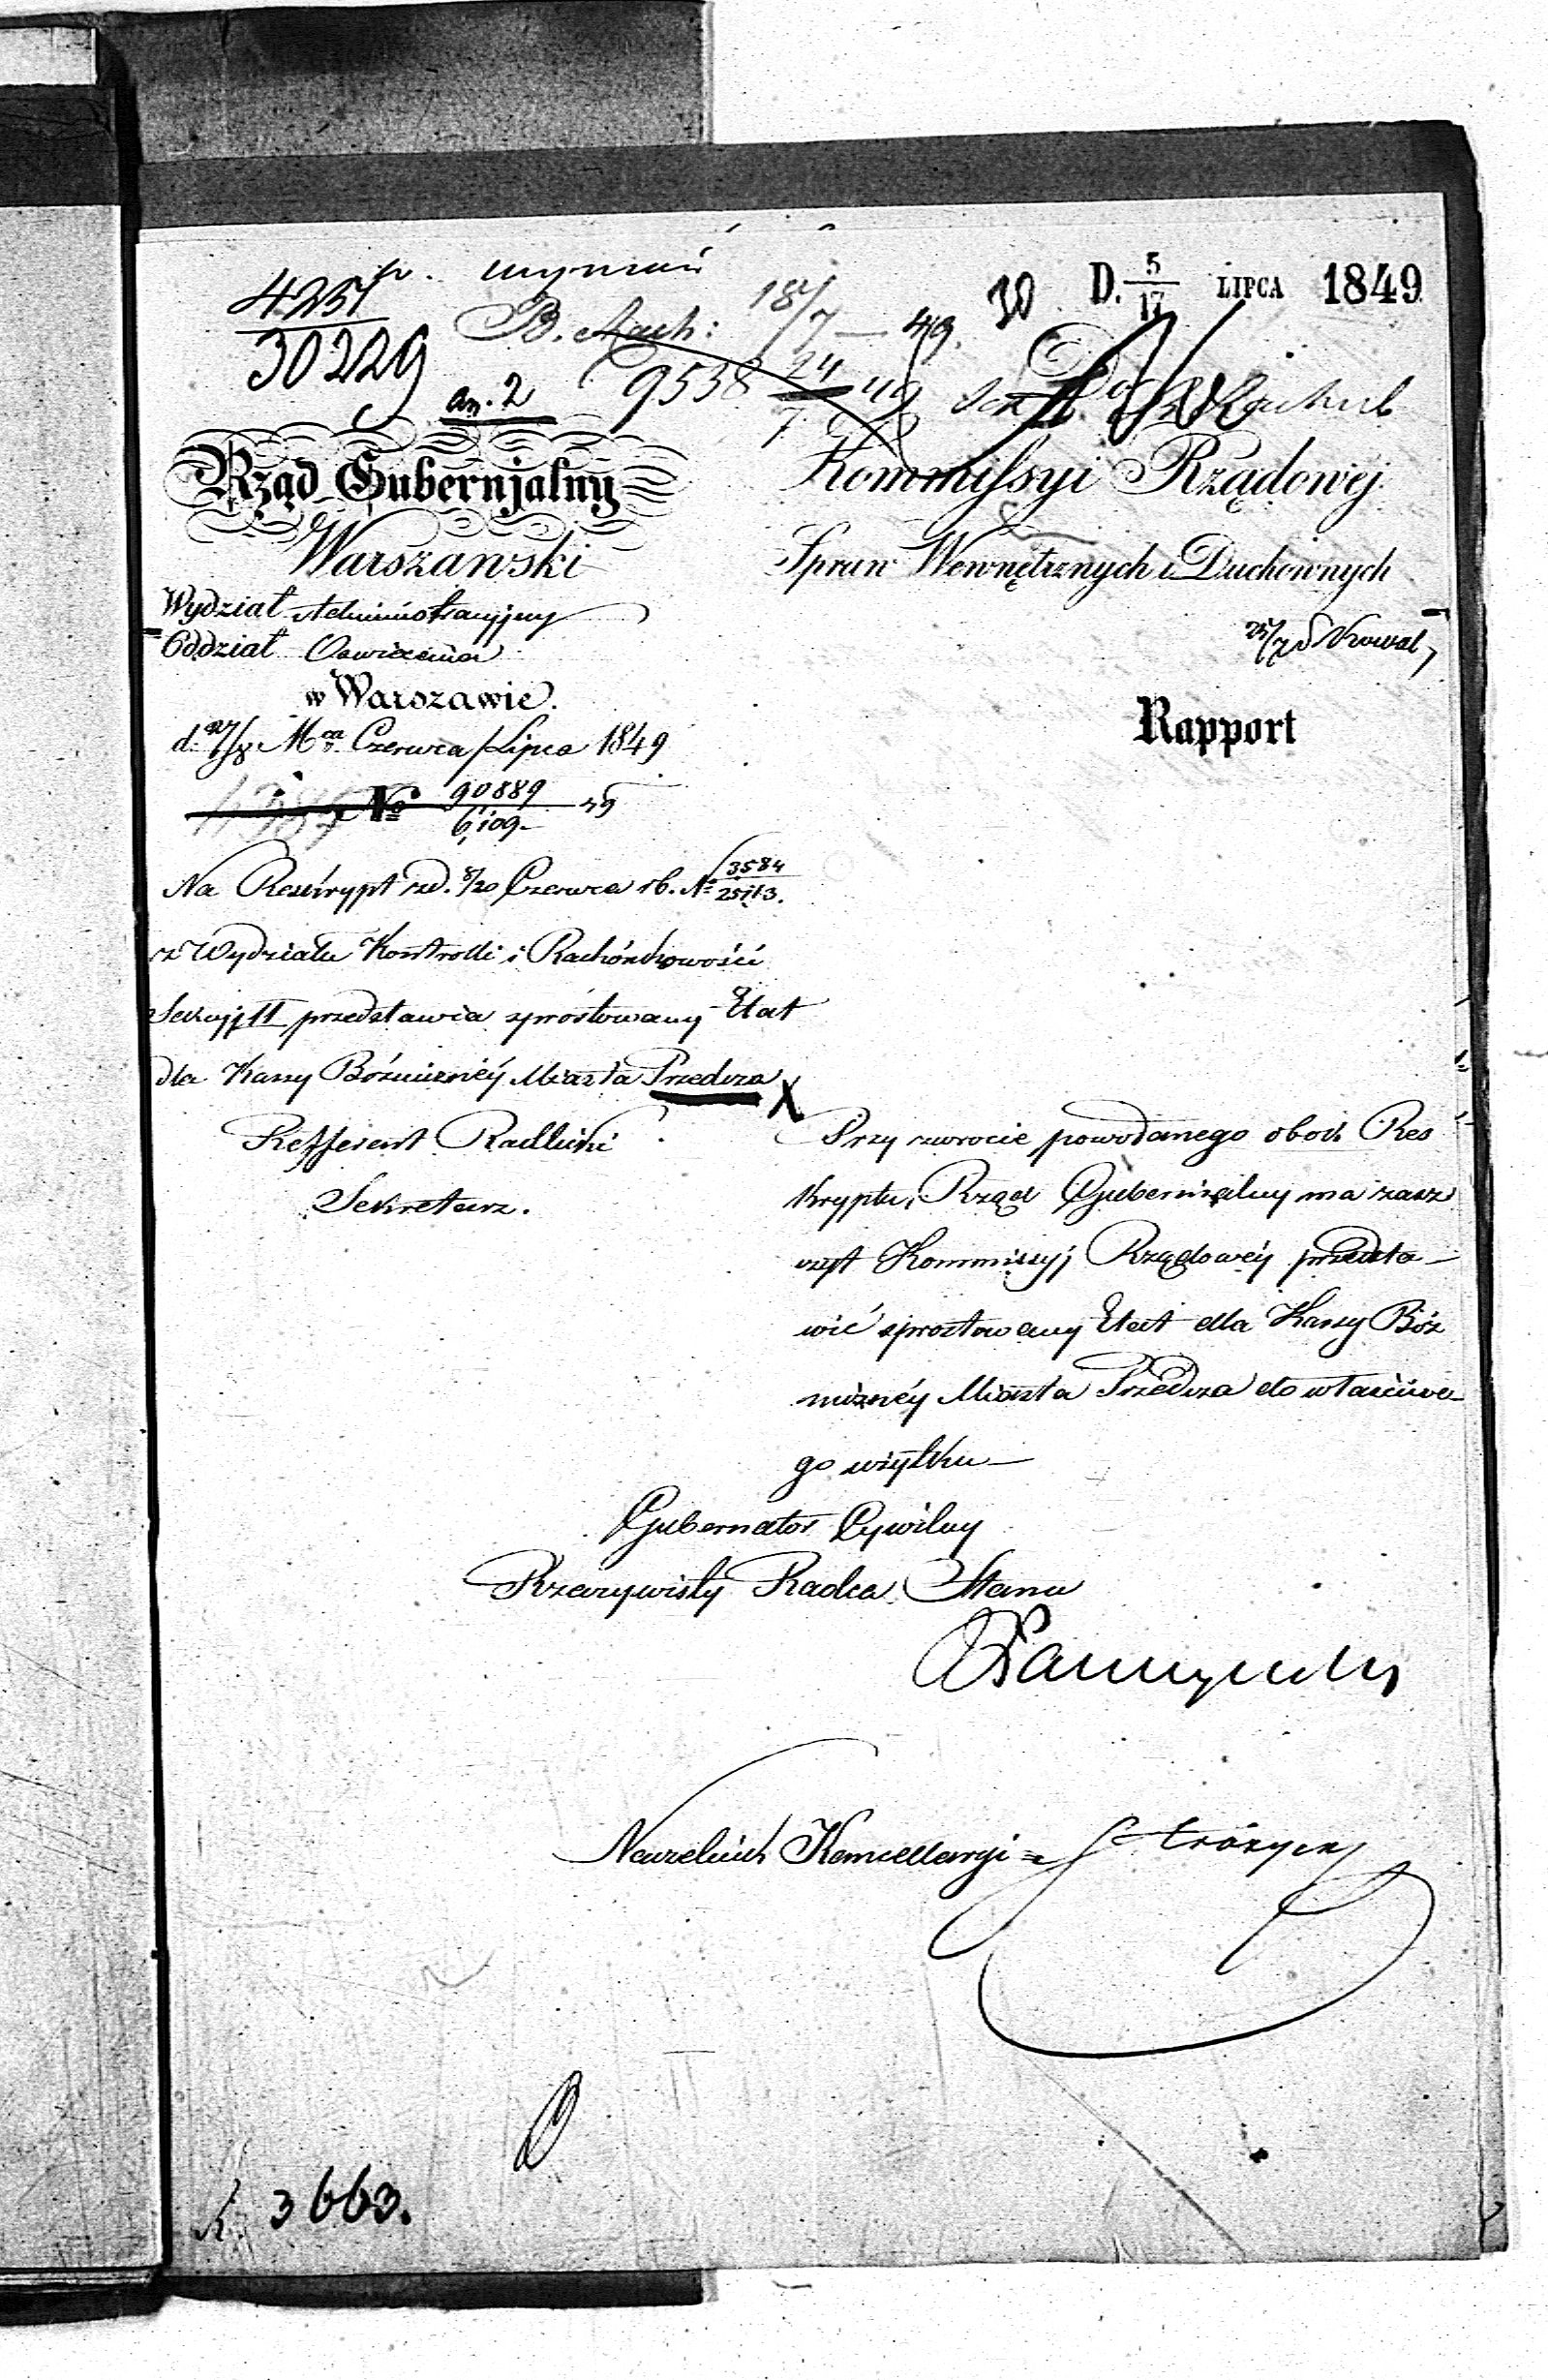 4251
30229
an. 2
18/7 – 49.
9538 24/7 49
30
D. 5/17 LIPCA 1849
Rząd Gubernjalny
Warszawski
Wydział Administracyjny
Oddział
w Warszawie.
d. 27/8 Mca Czerwca/Lipca 1849
No 90889/6109
Kommissyi Rządowéj
Spraw Wewnętrznych i Duchownych
Rapport
Na Reskrypt zd. 8/20 Czerwca rb. No 3584/25113.
z Wydziału Kontrolli i Rachónkowości
Sekcyj II przedstawia sprostowany Etat
dla Kassy Bóżnicznéy Miasta Przedcza
Refferent Radlicki
Sekretarz.
X
Przy zwrocie powołanego obok Res
kryptu, Rząd Gubernialny ma zasz
czyt Kommissyj Rządowéy przedsta–
wić sprostowany Etat dla Kassy Bóż
nicznéy Miasta Przedcza do właściwe–
go użytku –
Gubernator Cywilny
Rzeczywisty Radca Stanu
Naczelnik Kancellaryi
3663.